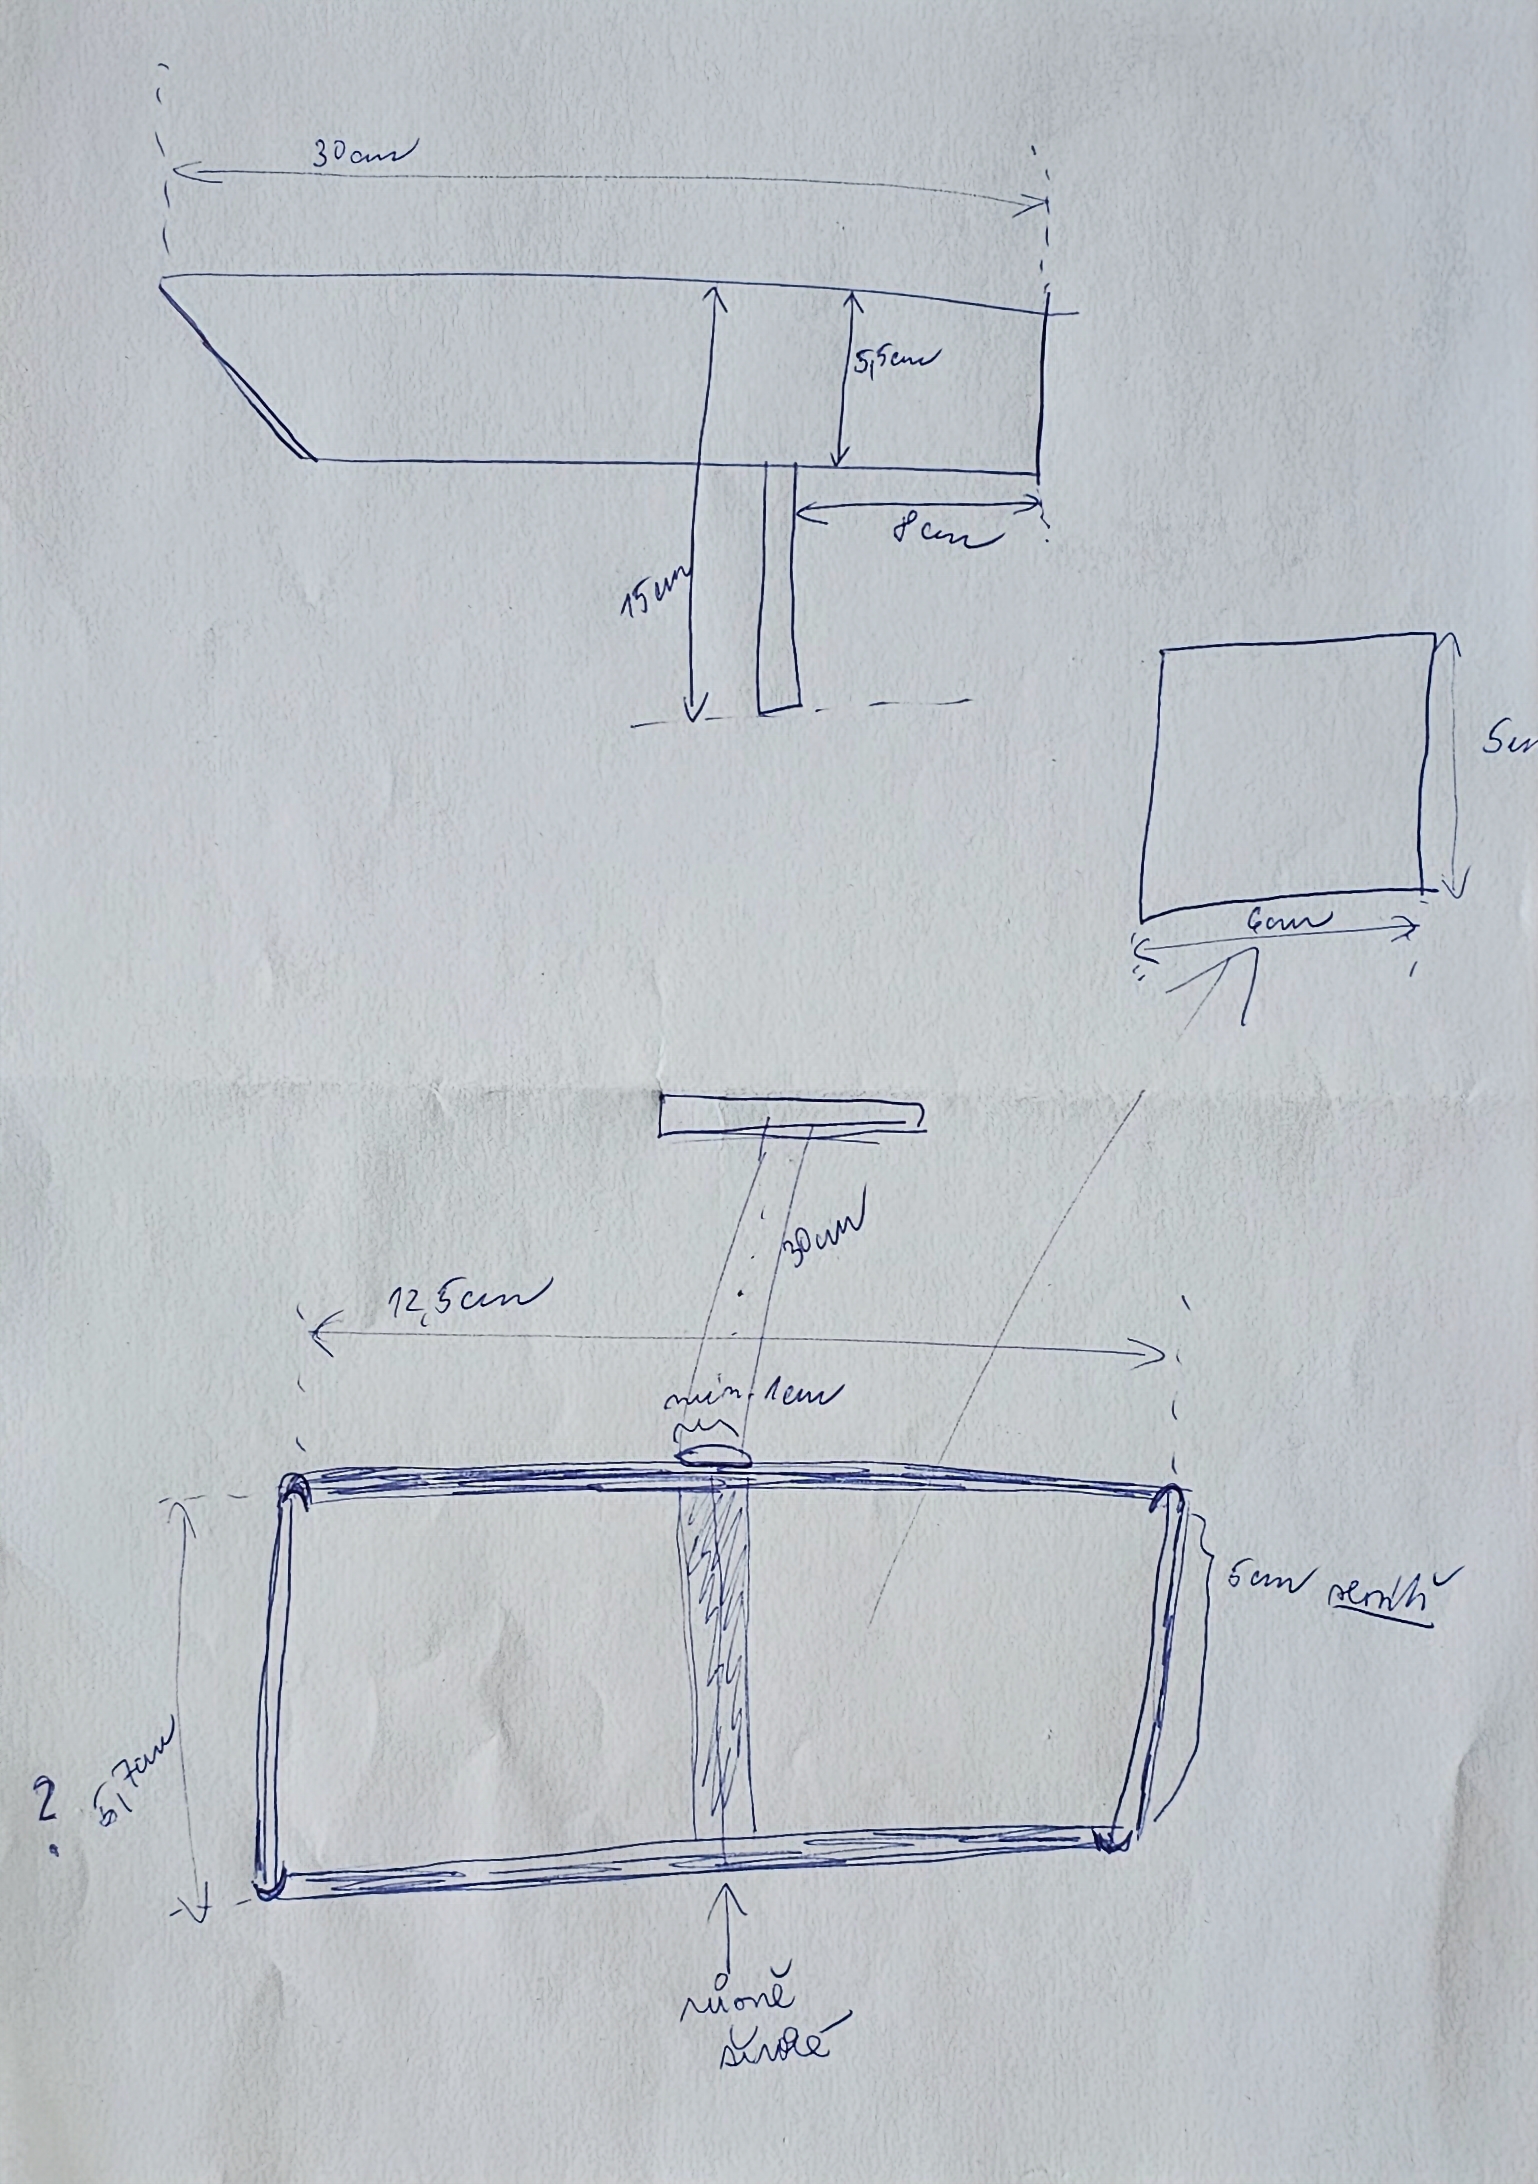 30cm
5,5cm
8cm
15cm
5cm
6cm
30cm
12,5cm
min. 1cm
5cm
? 5,7cm
různě
široké